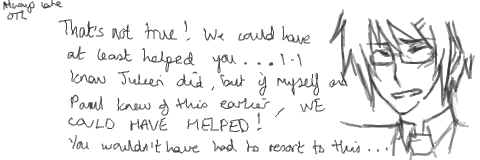 Always late
OTL
That's not true! We could have
at least helped you....I-I
know Julien did, but if myself or
Paul knew of this earlier, WE
COULD HAVE HELPED!
You wouldn't have had to resort to this...